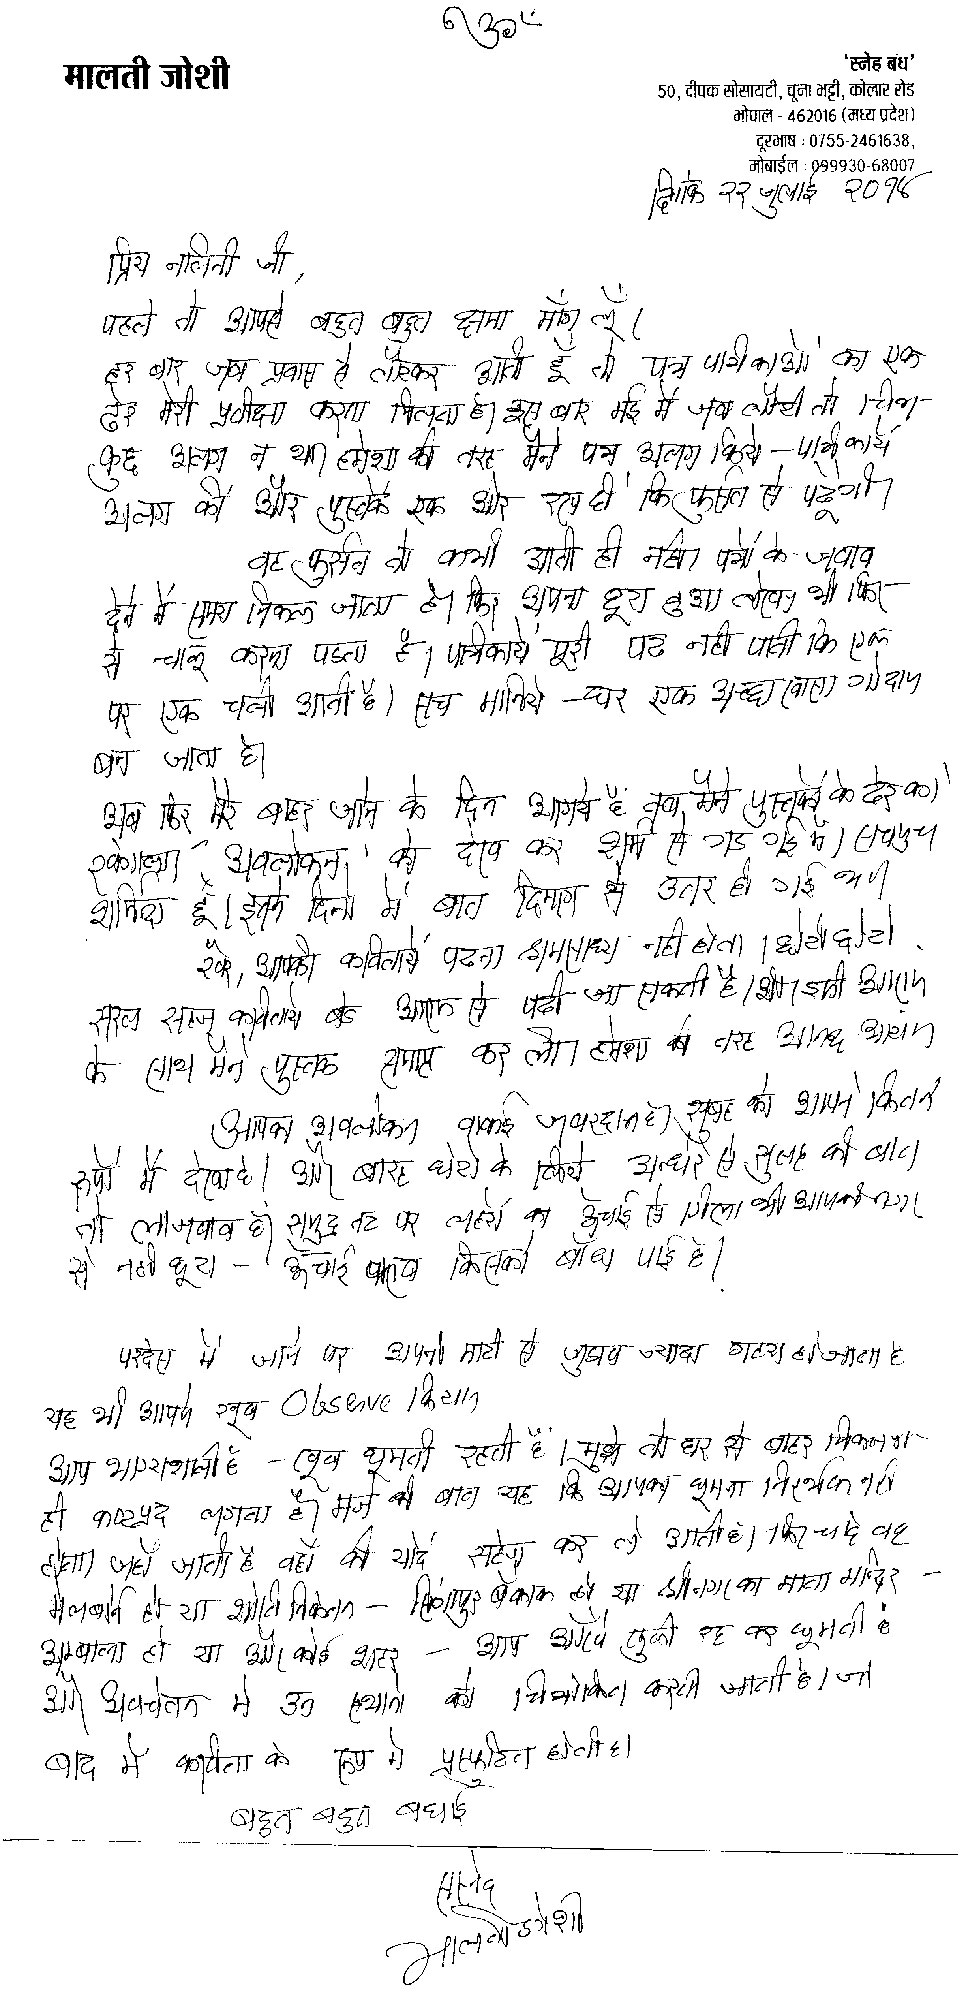 ॐ
मालती जोशी
'स्नेह बंध'
50, दीपक सोसायटी, चूना भट्टी, कोलार रोड
भोपाल - 462016 (मध्य प्रदेश)
दूरभाष : 0755-2461638,
मोबाईल : 099930-68007
दिनांक २२ जुलाई २०१४
प्रिय नलिनी जी,
पहले तो आपसे बहुत बहुत क्षमा माँग लूँ।
हर बार जब प्रवास से लौटकर आती हूँ तो पत्र पत्रिकाओं का एक
ढेर मेरी प्रतीक्षा करता मिलता है। इस बार मई में जब लौटी तो चित्र
कुछ अलग न था। हमेशा की तरह मैंने पत्र अलग किये - पत्रिकायें
अलग कीं और पुस्तकें एक ओर रख दीं कि फुर्सत से पढूँगी।
वह फुर्सत तो कभी आती ही नहीं। पत्रों के जवाब
देने में समय निकल जाता है। फिर अपना छूटा हुआ लेखन भी फिर
से चालू करना पडता है। पत्रिकायें पूरी पढ नहीं पाती कि एक
पर एक चली आती है। सच मानिये - घर एक अच्छा खासा गोदाम
बन जाता है।
अब फिर मेरे बाहर जाने के दिन आगये हैं तब मैंने पुस्तकों के ढेर को
खंगाला। 'अवलोकन' को देख कर शर्म से गड गई मैं। सचमुच
शर्मिंदा हूँ। इतने दिनों में बात दिमाग से उतर ही गई थी
खैर, आपकी कवितायें पढना श्रमसाध्य नहीं होता। छोटी छोटी
सरल सहज कवितायें बडे आराम से पढी जा सकती है। और इसी आराम
के साथ मैंने पुस्तक समाप्त कर ली। हमेशा की तरह आनंद आया
आपका अवलोकन वाकई जबरदस्त है। सुबह को आपने कितने
रूपों में देखा है। और बारह घंटों के लिये अन्धेरे से सुलह की बात
तो लाजवाब है। समुद्र तट पर लहरों का ऊँचाई से गिला भी आपकी नजर
से नहीं छूटा - ऊँचाई किसको बाँध पाई है।
परदेस में जाने पर अपनी माटी से जुडाव ज्यादा गहरा हो जाता है
यह भी आपने खूब Observe किया।
आप भाग्यशाली है - खूब घूमती रहती हैं। मुझे तो घर से बाहर निकलना
ही कष्टप्रद लगता है। मजे की बात यह कि आपका घूमना निरर्थक नहीं
होता। जहाँ जाती है वहाँ की यादें सहेज कर ले आती है। फिर चाहे वह
मेलबोर्न हो या शांति निकेतन - सिंगापुर बैंकाक हो या श्रीनगर का माता मन्दिर -
अम्बाला हो या और कोई शहर - आप आँखें खुली रख कर घूमती है
और अवचेतन में उन स्थानों को चित्रांकित करती जाती है। जो
बाद में कविता के रूप में प्रस्फुटित होती है।
बहुत बहुत बधाई
सस्नेह
मालती जोशी